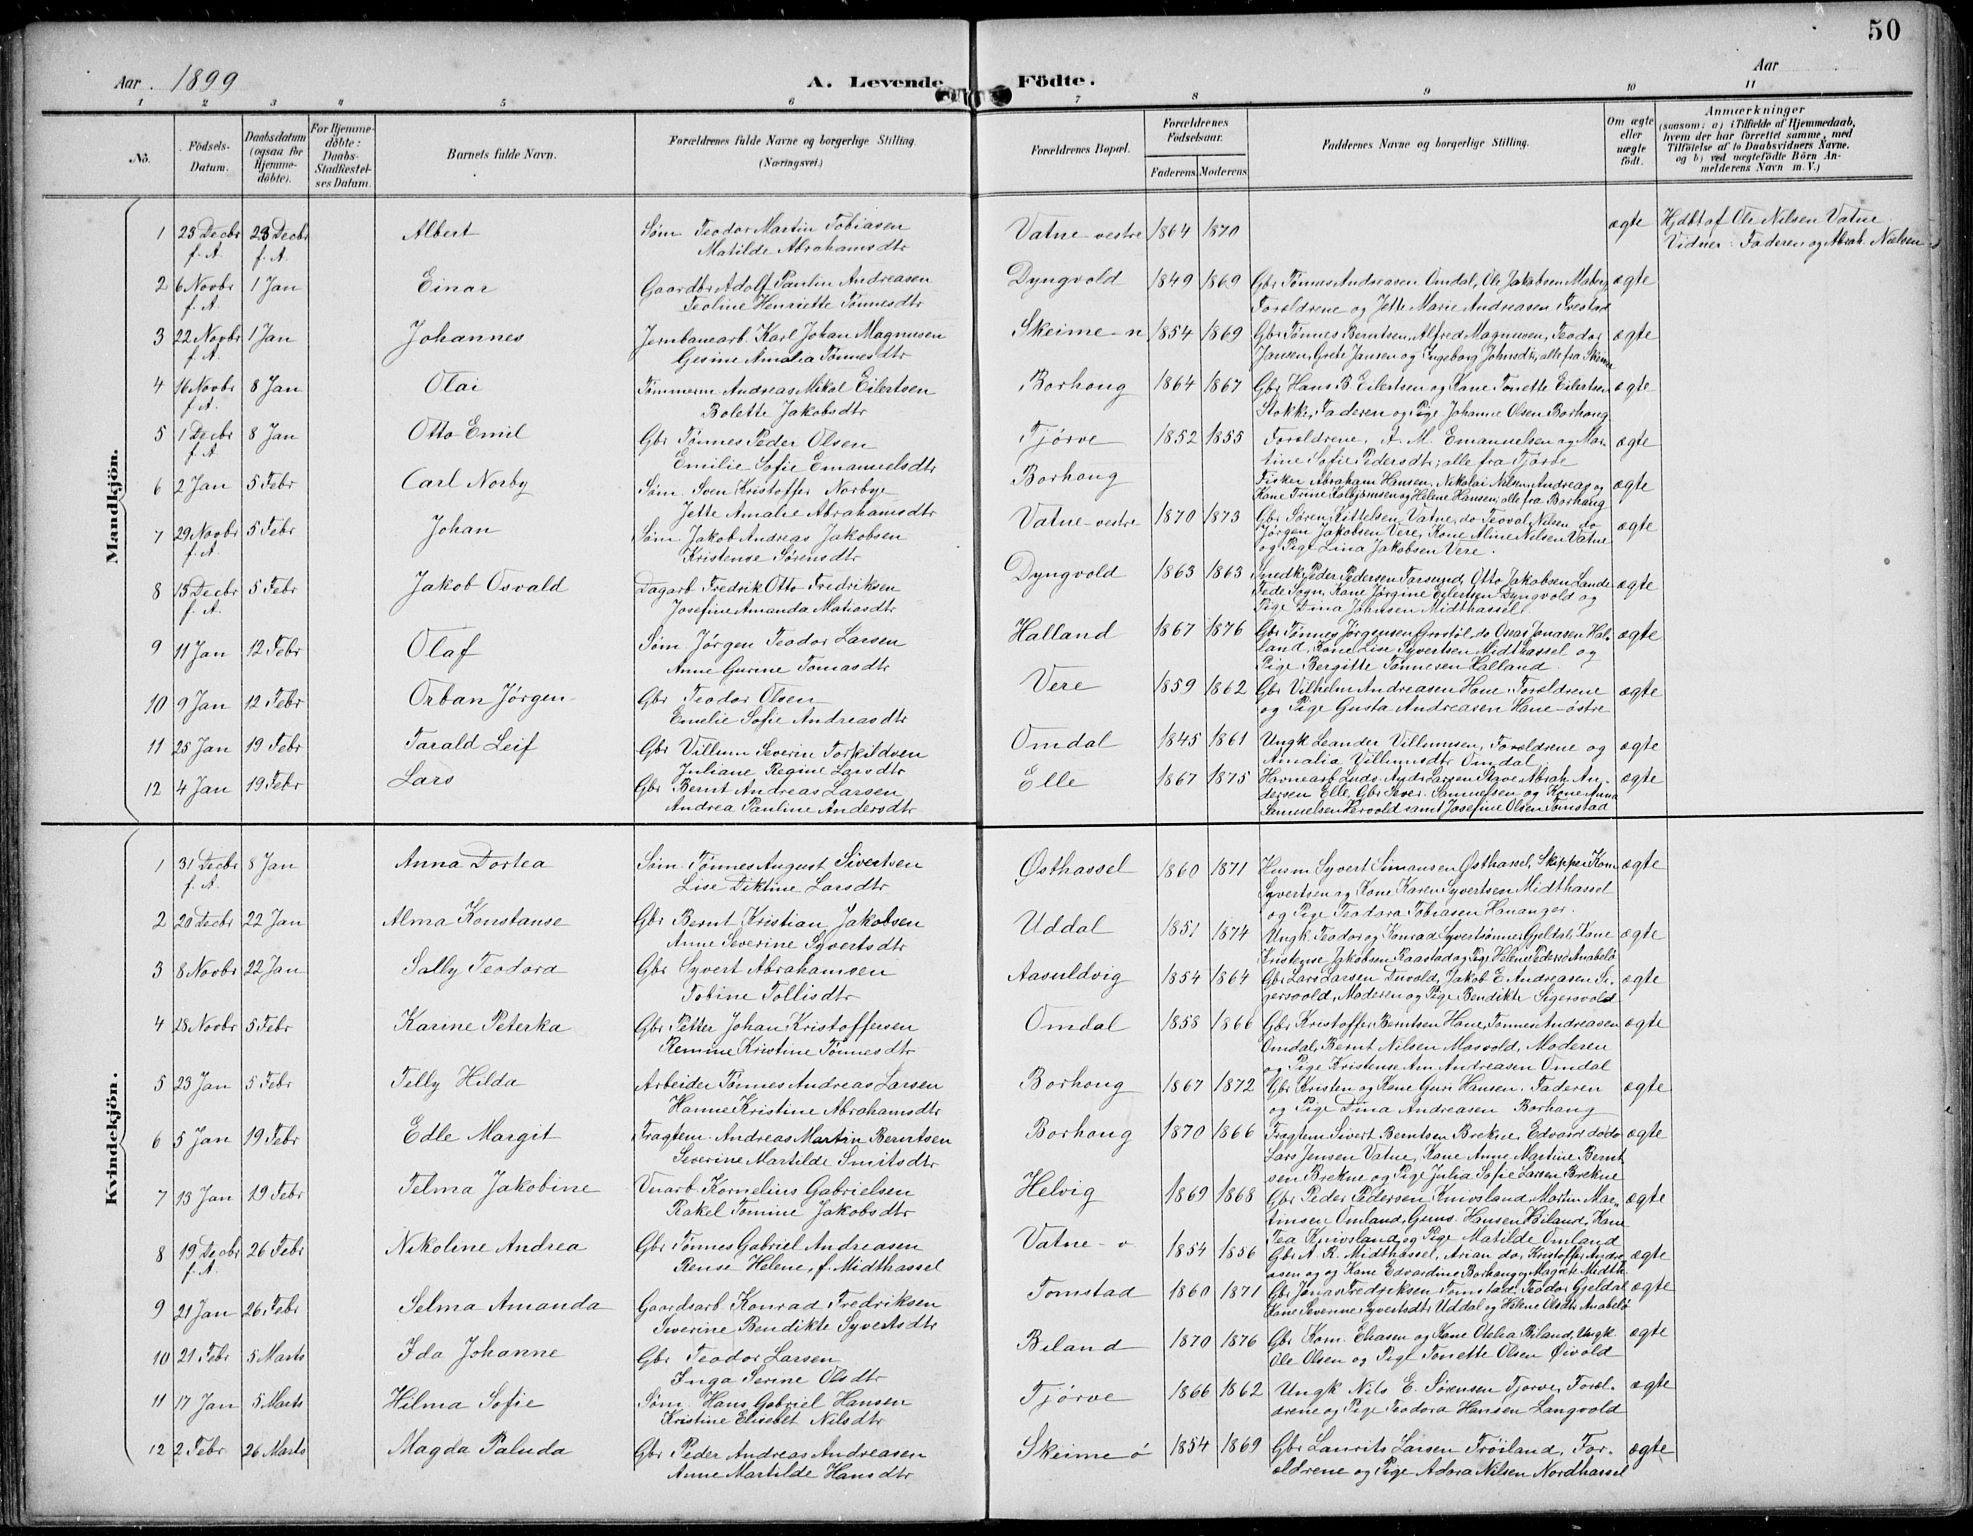 50
Aar 1899
A. Levende Födte.
Aar
1 2 3 4 5 6 7 8 9 10 11
No.
Födsels-Datum.
Daabsdatum (ogsaa for Hjemme-döbte).
For Hjemme-döbte: Daabs-Stadfæstel-ses Datum.
Barnets fulde Navn.
Forældrenes fulde Navne og borgerlige Stilling. (Næringsvei.)
Forældrenes Bopæl.
Forældrenes Födselsaar.
Faderens. Moderens.
Faddernes Navne og borgerlige Stilling.
Om ægte eller uægte födt.
Anmærkninger
(saasom: a) i Tilfælde af Hjemmedaab, hvem der har forrettet samme, med Tilföielse af to Daabsvidners Navne. og b) ved uægtefödte Börn An-melderens Navn m. V.)
Mandkjön.
1 23 Decbr f. A. 23 Decbr f. A. Albert Søm. Teodor Martin Tobiasen Vatne-vestre 1864 1870 ægte Hjdbt af Ole Nilsen Vatne
Matilde Abrahamsdtr Vidner: Faderen og Abrah. Nielsen
2 6 Novbr f. A. 1 Jan Einar Gaardbr Adolf Paulin Andreasen Dyngvold 1849 1869 Gbr Tønnes Andreasen Omdal, Ole Jakobsen ægte
Teoline Henriette Tønnesdtr Forældrene og Jette Marie Andreasen
3 22 Novbr f. A. 1 Jan Johannes Jernbanearb. Karl Johan Magnusen Skeime-n 1854 1869 Gbr Tønnes Berntsen, Alfred Magnusen, Teodor ægte
Gesine Amalia Tønnesdtr Jansen, Grete Jansen og Ingeborg Johnsdtr, alle fra Skeime
4 16 Novbr f. A. 8 Jan Olai Tømmerm Andreas Mikal Eilertsen Borhoug 1864 1867 Gbr Hans B Eilertsen og Kone Tonette Eilertsen ægte
Bolette Jakobsdtr Stokke, Faderen og Pige Johanne Olsen Borhoug
5 1 Decbr f. A 8 Jan Otto Emil Gbr Tønnes Peder Olsen Tjørve 1852 1855 Forældrene, A. M. Emanuelsen og Mar- ægte
Emilie Sofie Emanuelsdtr tine Sofie Pedersdtr; alle fra Tjørve
6 2 Jan 5 Febr Carl Norby Søm. Sven Kristoffer Norbye Borhoug Fisker Abraham Hansen, Nikolai Nilsen, Andreas og ægte
Jette Amalie Abrahamsdtr Kone Trine Kolbjørnsen og Helene Hansen; alle fra Borhoug
7 29 Novbr f. A 5 Febr Johan Søm. Jakob Andreas Jakobsen Vatne-vestre 1870 1873 Gbr Søren Kittelsen Vatne, do Teoval Nilsen do ægte
Kristense Sørensdtr Jørgen Jakobsen Vere, Kone Aline Nilsen Vatne
og Pige Lina Jakobsen Vere.
8 15 Decbr f. A. 5 Febr Jakob Osvald Dagarb Fredrik Otto Fredriksen Dyngvold 1863 1863 Snedk Peder Pedersen Farsund, Otto Jakobsen Lande ægte
Josefine Amanda Matiasdtr Fede Sogn, Kone Jørgine Eilertsen Dyngvold og
Pige Dina Johnsen Midthassel
9 11 Jan 12 Febr Olaf Søm Jørgen Teodor Larsen Halland 1867 1876 Gbr Tønnes Jørgensen Grostøl, do Onas Jonasen Hal- ægte
Anne Gurine Tomasdtr land, Kone Lise Syvertsen Midthassel og
Pige Bergitte Tønnesen Halland.
10 9 Jan 12 Febr Orban Jørgen Gbr Teodor Olsen Vere 1859 1862 Gbr Vilhelm Andreasen Hane, Forældrene ægte
Emelie Sofie Andreasdtr og Pige Gusta Andreasen Hane-østre
11 25 Jan 19 Febr Tarald Leif Gbr Villum Severin Torkildsen Omdal 1845 1861 Ungk Leander Villumsen, Forældrene og ægte
Juliane Regine Larsdtr Amalia Villumsdtr Omdal
12 4 Jan 19 Febr Lars Gbr Bernt Andreas Larsen Elle 1867 1875 Havnearb. Ludv. Andr. Larsen Abrah. An- ægte
Andrea Pauline Andersdtr dersen Elle, Gbr Sever. Samuelsen og Kone Anna
Samuelsen samt Josefine Olsen Tomstad
Kvindekjön.
1 31 Decbr f. A. 8 Jan Anna Dortea Søm. Tønnes August Sivertsen Østhassel 1860 1871 Husm Syvert Simonsen Østhassel, Skipper Korn ægte
Lise Diktine Larsdtr Syvertsen og Kone Karen Syvertsen Midthassel
og Pige Teodora Tobiasen Hananger.
2 20 Decbr 22 Jan Alma Konstanse Gbr Bernt Kristian Jakobsen Uddal 1851 1874 Ungk. Teodor og Konrad Syvertsønner Gjeldal, Kone ægte
Anne Severine Syvertsdtr Kristense Jakobsen Raastad og Pige Helene Anabelø
3 8 Novbr 22 Jan Sally Teodora Gbr Syvert Abrahamsen Aasuldvig 1854 1864 Gbr Lars Larsen Duvold, Jakob E. Andreasen Si- ægte
Tobine Tollisdtr gersvold, Moderen og Pige Bendikte Sigersvold
4 28 Novbr 5 Febr Karine Peterka Gbr Petter Johan Kristoffersen Omdal 1858 1866 Gbr Kristoffer Berntsen Hane, Tønnes Andreasen ægte
Remine Kristine Tønnesdtr Omdal, Bernt Nilsen Mosvold, Moderen
og Pige Kristense Am Andreasen Omdal
5 23 Jan 5 Febr Telly Hilda Arbeider Tønnes Andreas Larsen Borhoug 1867 1872 Gbr Kristen og Kone Guri Hansen, Faderen ægte
Hanne Kristine Abrahamsdtr og Pige Dina Andreasen Borhoug
6 5 Jan 19 Febr Edle Margit Fragtem. Andreas Martin Berntsen Borhoug 1870 1866 Fragtem Sivert Berntsen Brekne, Edvard do do ægte
Severine Martilde Smitsdtr Lars Jensen Vatne, Kone Anne Martine Bernt
sen Brekne og Pige Julia Sofie Larsen Brekne
7 13 Jan 19 Febr Telma Jakobine Vnarb. Kornelius Gabrielsen Helvig 1869 1868 Gbr Peder Pedersen Knivsland, Martin Mar- ægte
Rakel Tomine Jakobsdtr tinsen Omland, Guns. Hansen Høiland, Kone
Tea Knivsland og Pige Matilde Omland
8 19 Decbr f. A. 26 Febr Nikoline Andrea Gbr Tønnes Gabriel Andreasen Vatne-ø 1854 1856 Gbr A. R. Midthassel, Arian do, Kristoffer Andre ægte
Rense Helene, f. Midthassel asen og Kone Edvardine Borhoug og Magrete Midth.
9 21 Jan 26 Febr Selma Amanda Gaardsarb Konrad Fredriksen Tomstad 1860 1871 Gbr Jonas Fredriksen Tomstad, Teodor Gjeldal ægte
Severine Bendikte Syvertsdtr Kone Severine Syvertsdtr Uddal og Helene Olsdtr Anabelø
10 21 Febr 5 Marts Ida Johanne Gbr Teodor Larsen Biland 1870 1876 Gbr Korn. Eliasen og Kone Otelia Biland, Ungk ægte
Inga Serine Olsdtr Ole Olsen og Pige Tonette Olsen Øivold
11 17 Jan 5 Marts Hilma Sofie Søm. Hans Gabriel Hansen Tjørve 1866 1862 Ungk Nils E. Sørensen Tjørve, Foræl- ægte
Kristine Eliselet Nilsdtr drene og Pige Teodora Hansen Langvold
12 2 Febr 26 Marts Magda Paluda Gbr Peder Andreas Andreasen Skeime ø 1854 1869 Gbr Laurits Larsen Frøiland, For- ægte
Anne Martilde Hansdtr ældrene og Pige Adora Nilsen Nordhassel